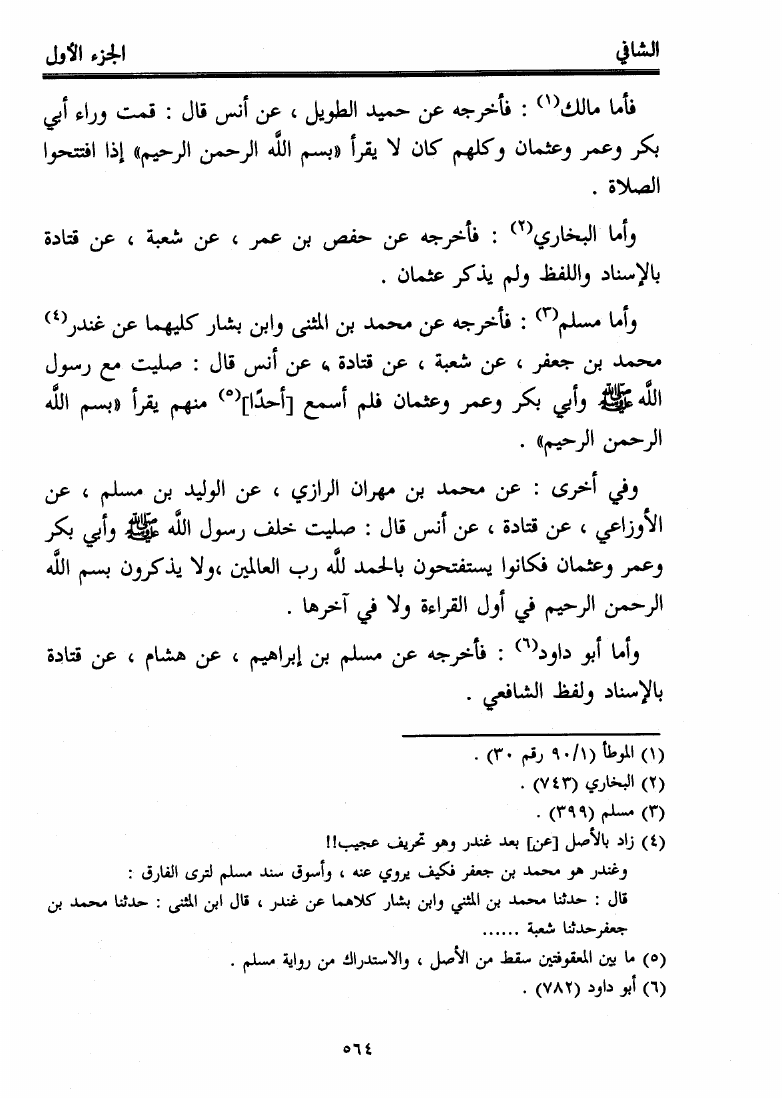 الشافي
الجزء الأول
فأما مالك(١) : فأخرجه عن حميد الطويل ، عن أنس قال : قمت وراء أبي
بكر وعمر وعثمان وكلهم كان لا يقرأ «بسم الله الرحمن الرحيم» إذا افتتحوا
الصلاة .
وأما البخاري(٢) : فأخرجه عن حفص بن عمر ، عن شعبة ، عن قتادة
بالإسناد واللفظ ولم يذكر عثمان .
وأما مسلم(٣) : فأخرجه عن محمد بن المثنى وابن بشار كليهما عن غندر(٤)
محمد بن جعفر ، عن شعبة ، عن قتادة ، عن أنس قال : صليت مع رسول
الله ﷺ وأبي بكر وعمر وعثمان فلم أسمع [أحدًا](٥) منهم يقرأ «بسم الله
الرحمن الرحيم» .
وفي أخرى : عن محمد بن مهران الرازي ، عن الوليد بن مسلم ، عن
الأوزاعي ، عن قتادة ، عن أنس قال : صليت خلف رسول الله ﷺ وأبي بكر
وعمر وعثمان فكانوا يستفتحون بالحمد لله رب العالمين ،ولا يذكرون بسم الله
الرحمن الرحيم في أول القراءة ولا في آخرها .
وأما أبو داود(٦) : فأخرجه عن مسلم بن إبراهيم ، عن هشام ، عن قتادة
بالإسناد ولفظ الشافعي .
(١) الموطأ (٩٠/١ رقم ٣٠) .
(٢) البخاري (٧٤٣) .
(٣) مسلم (٣٩٩) .
(٤) زاد بالأصل [عن] بعد غندر وهو تحريف عجيب!!
وغندر هو محمد بن جعفر فكيف يروي عنه ، وأسوق سند مسلم لترى الفارق :
قال : حدثنا محمد بن المثني وابن بشار كلاهما عن غندر ، قال ابن المثنى : حدثنا محمد بن
جعفرحدثنا شعبة ......
(٥) ما بين المعقوفتين سقط من الأصل ، والاستدراك من رواية مسلم .
(٦) أبو داود (٧٨٢) .
٥٦٤